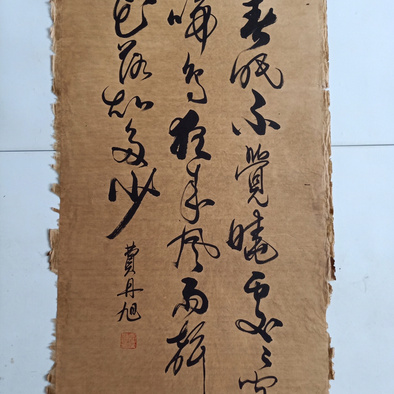 春眠不覺曉處々聞
啼鳥夜来風雨聲
花落知多少
費丹旭